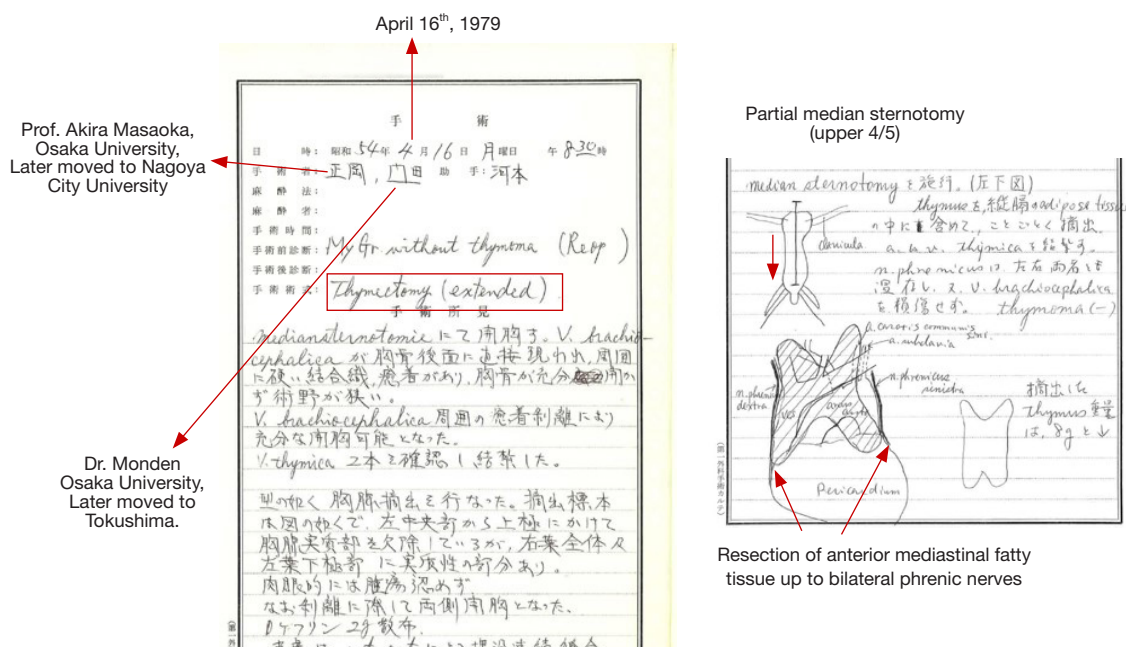 April 16th, 1979
Prof. Akira Masaoka,
Osaka University,
Later moved to Nagoya
City University
Dr. Monden
Osaka University,
Later moved to
Tokushima.
手術
日時: 昭和54年4月16日 月曜日 午 8 30時
手術者: 正岡, 門田 助手: 河本
麻酔法:
麻酔者:
手術時間:
手術前診断: My Gr. without thymoma (Reop)
手術後診断:
手術術式: Thymectomy (extended)
手術所見
mediansternotomieにて開胸す。V. brachio-
cephalicaが胸骨後面に直接現われ、周囲
に硬い結合織、患者があり、胸骨が充分開か
ず術野が狭い。
V. brachiocephalica周囲の患者剥離により
充分な開胸可能となった。
V. thymica 2本を確認し結紮した。
型の如く胸腺摘出を行なった。摘出標本
は図の如くで、左中央部から上極にかけて
胸腺実質部を欠除しているが、右葉全体及
左葉下極部に実質性の部分あり。
肉眼的には腫瘍認めず
なお剥離に際して両側開胸となった、
2g散布.
Partial median sternotomy
(upper 4/5)
median sternotomyを施行。(左下図)
thymusを、縦隔のadipose tissue
の中に含めて、ことごとく摘出。
a.a.v. thymicaを結紮す。
n. phrenicusは、左右両者とも
V. brachiocephalica
を損傷せず。 thymoma (-)
clavicula
a. carotis communis
sins.
a. subclavia
n. phrenicus
sinistra
n. phrenicus
destra
Pericardium
摘出した
thymus重量
は、8gと↓
(第一外科手術カルテ)
Resection of anterior mediastinal fatty
tissue up to bilateral phrenic nerves